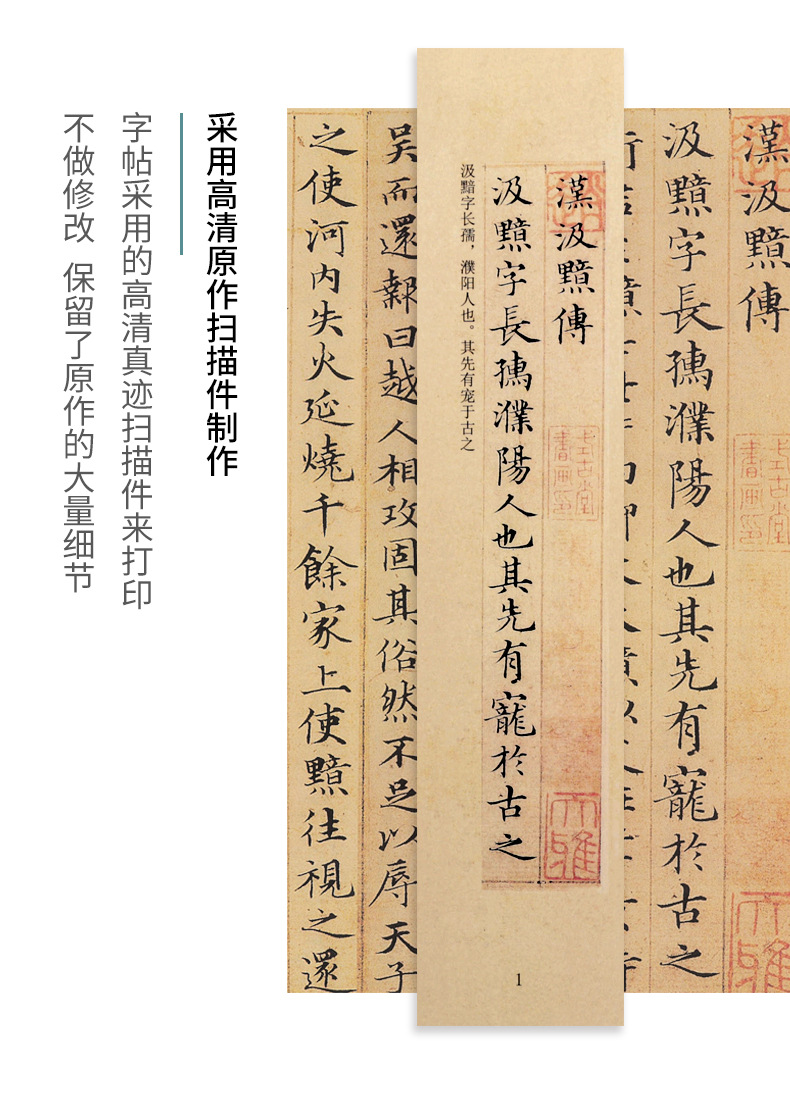 采用高清原作扫描件制作
字帖采用的高清真迹扫描件来打印
不做修改 保留了原作的大量细节
漢汲黯傳
汲黯字長孺濮陽人也其先有寵於古之
吳而還報曰越人相攻固其俗然不足以辱天子
之使河内失火延燒千餘家上使黯往視之還
漢汲黯傳
汲黯字長孺濮陽人也其先有寵於古之
汲黯字长孺，濮阳人也。其先有宠于古之
1